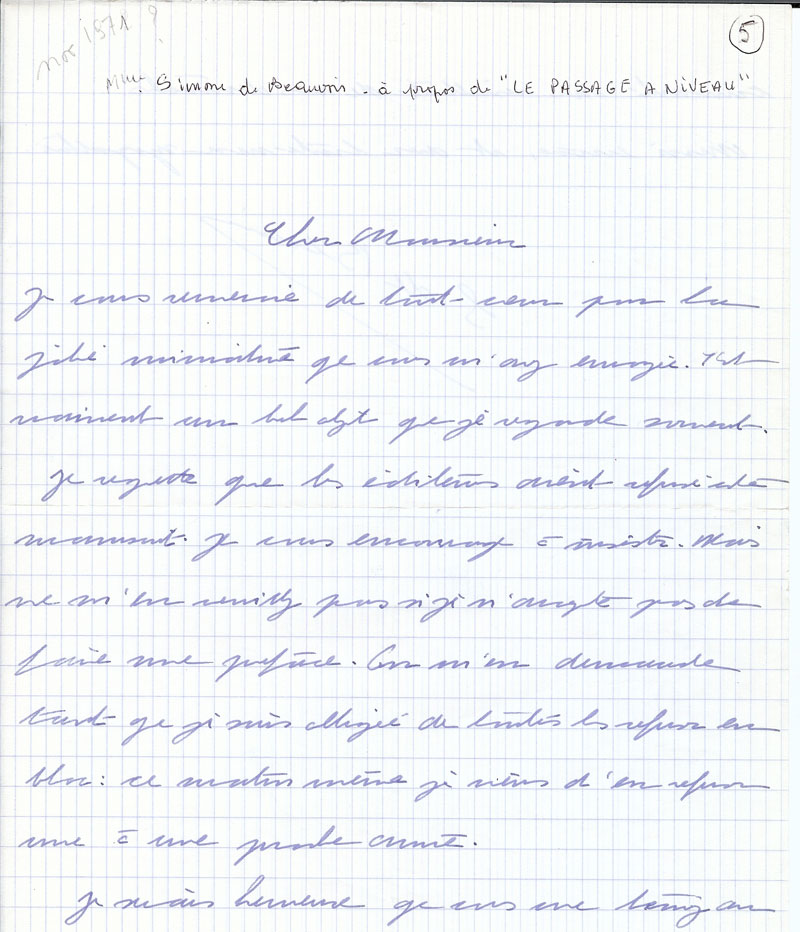 nov 1971 ?
5
Mme Simone de Beauvoir - à propos de "LE PASSAGE A NIVEAU"
Cher Monsieur
Je vous remercie de tout cœur pour la
jolie miniature que vous m'avez envoyée. C'est
vraiment un bel objet que je regarde souvent.
Je regrette que les éditeurs aient refusé votre
manuscrit. Je vous encourage à insister. Mais
ne m'en veuillez pas si je n'accepte pas de
faire une préface. On m'en demande
tant que je suis obligée de toutes les refuser en
bloc : ce matin même je viens d'en refuser
une à une proche amie.
Je serais heureuse que vous me teniez au